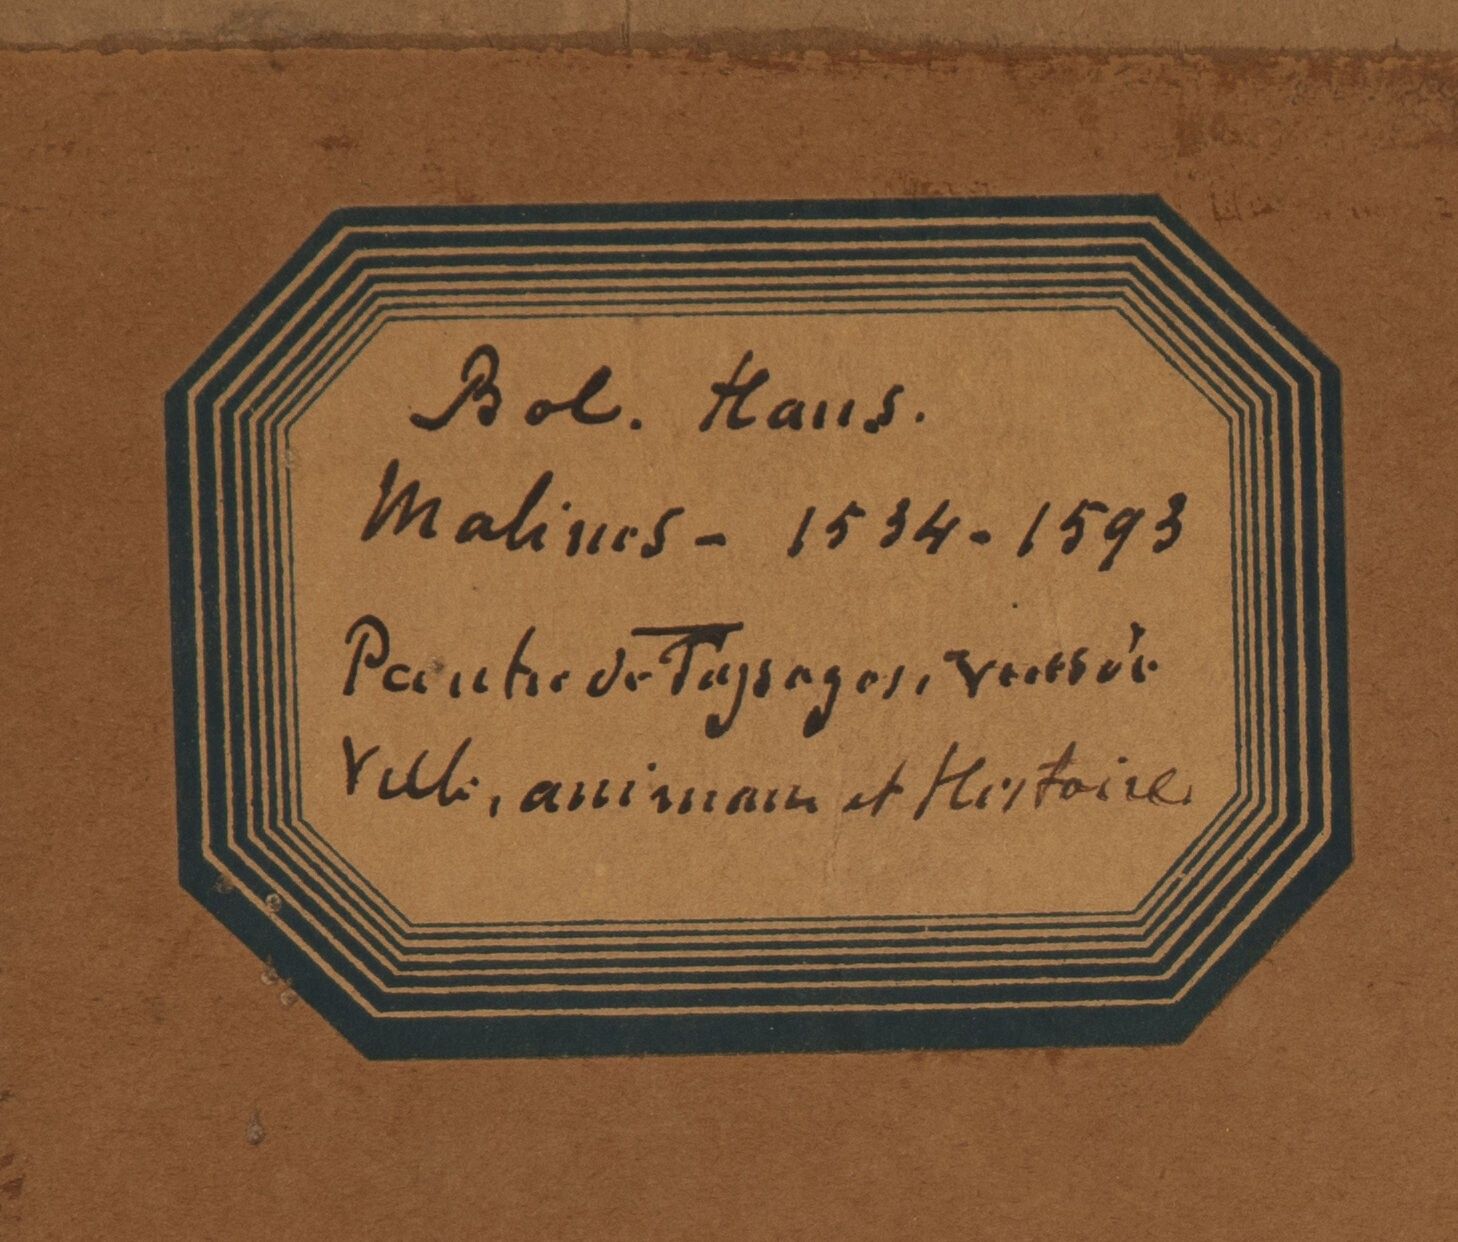 Bol. Hans.
Malines - 1534 - 1593
Peintre de Paysages, vues de
Ville, animaux et Histoire.